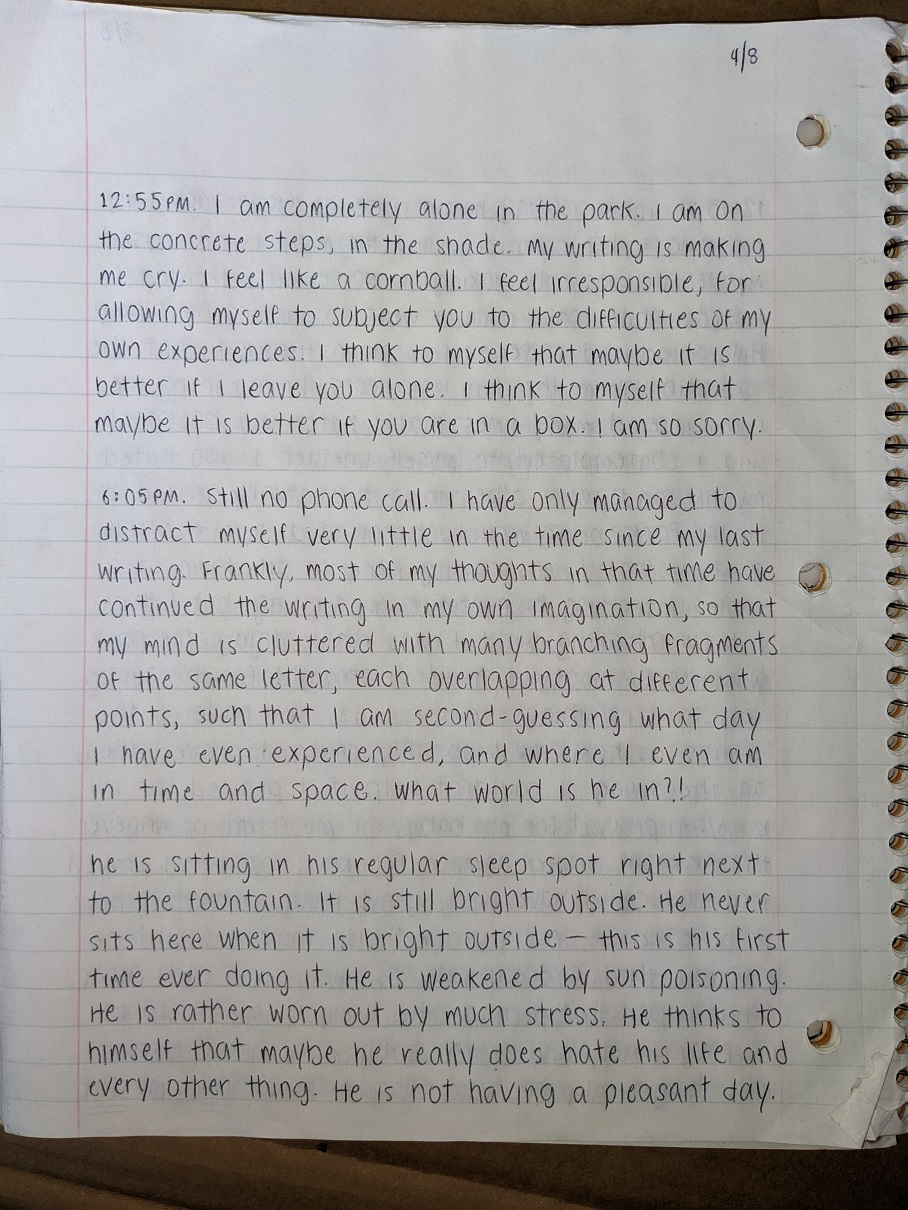 4/8
12:55PM. I am completely alone in the park. I am on
the concrete steps, in the shade. My writing is making
me cry. I feel like a cornball. I feel irresponsible, for
allowing myself to subject you to the difficulties of my
own experiences. I think to myself that maybe it is
better if I leave you alone. I think to myself that
maybe it is better if you are in a box. I am so sorry.
6:05PM. Still no phone call. I have only managed to
distract myself very little in the time since my last
writing. Frankly, most of my thoughts in that time have
continued the writing in my own imagination, so that
my mind is cluttered with many branching fragments
of the same letter, each overlapping at different
points, such that I am second-guessing what day
I have even experienced, and where I even am
in time and space. What world is he in?!
He is sitting in his regular sleep spot right next
to the fountain. It is still bright outside. He never
sits here when it is bright outside — this is his first
time ever doing it. He is weakened by sun poisoning.
He is rather worn out by much stress. He thinks to
himself that maybe he really does hate his life and
every other thing. He is not having a pleasant day.